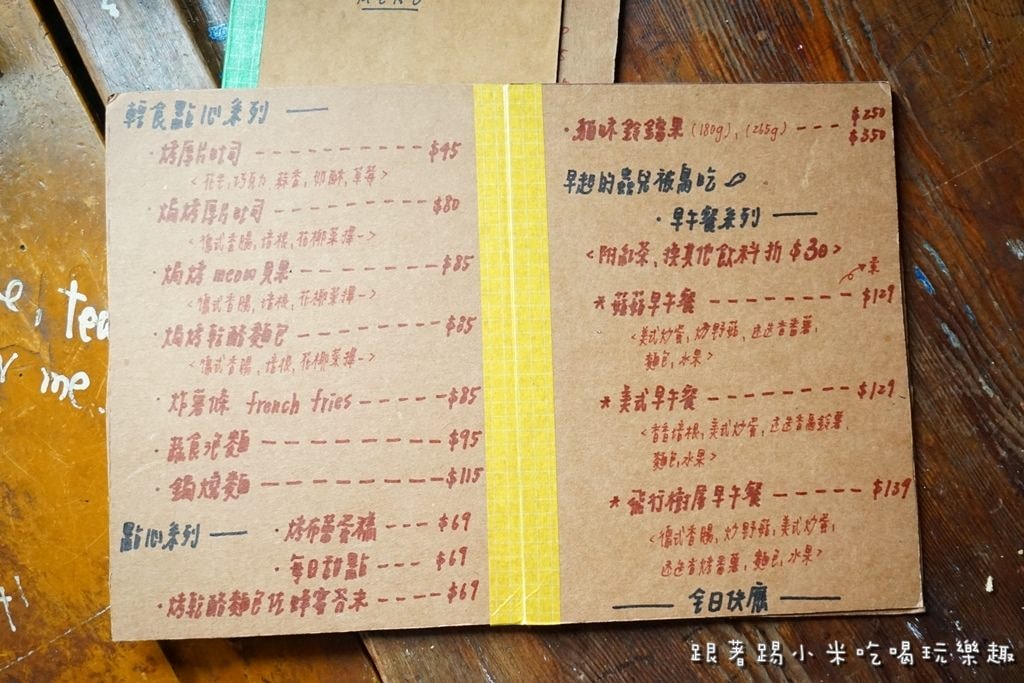 MENU
輕食點心系列
·烤厚片吐司 $95
<花生,巧克力,蒜香,奶酥,草莓>
·焗烤厚片吐司 $80
<德式香腸,培根,花椰菜擇一>
·焗烤 meow 貝果 $85
<德式香腸,培根,花椰菜擇一>
·焗烤乾酪麵包 $85
<德式香腸,培根,花椰菜擇一>
·炸薯條 french fries $85
·蔬食泡麵 $95
·鍋燒麵 $115
點心系列
·烤布蕾蛋糕 $69
·每日甜點 $69
·烤乾酪麵包佐蜂蜜芥末 $69
·貓咪鈴鐺果 (180g), (265g) $250 $350
早起的蟲兒被鳥吃
·早午餐系列
<附紅茶,換其他飲料折 $30>
*菇菇早午餐 $129 素
<美式炒蛋,炒野菇,迷迭香番薯,
麵包,水果>
*美式早午餐 $129
<香香培根,美式炒蛋,迷迭香馬鈴薯,
麵包,水果>
*飛行樹屋早午餐 $139
<德式香腸,炒野菇,美式炒蛋,
迷迭香烤番薯,麵包,水果>
全日供應
e, tea
r me.
跟著踢小米吃喝玩樂趣